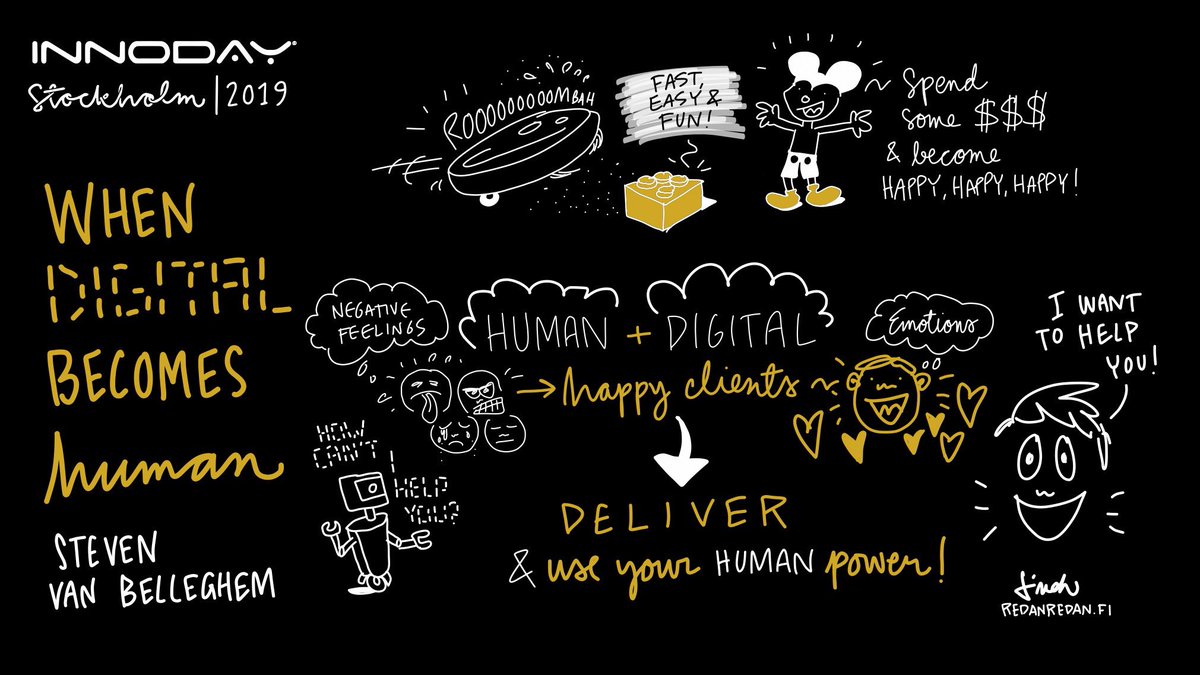 INNODAY
Stockholm | 2019
WHEN
DIGITAL
BECOMES
human
STEVEN
VAN BELLEGHEM
ROOOOOOOOMBAH
FAST,
EASY &
FUN!
~ Spend
some $$$
& become
HAPPY, HAPPY, HAPPY!
NEGATIVE
FEELINGS
HUMAN + DIGITAL
Emotions
→ happy clients ~
I WANT
TO HELP
YOU!
HOW
CAN'T I
HELP
YOU?
DELIVER
& use your HUMAN power!
REDANREDAN.FI